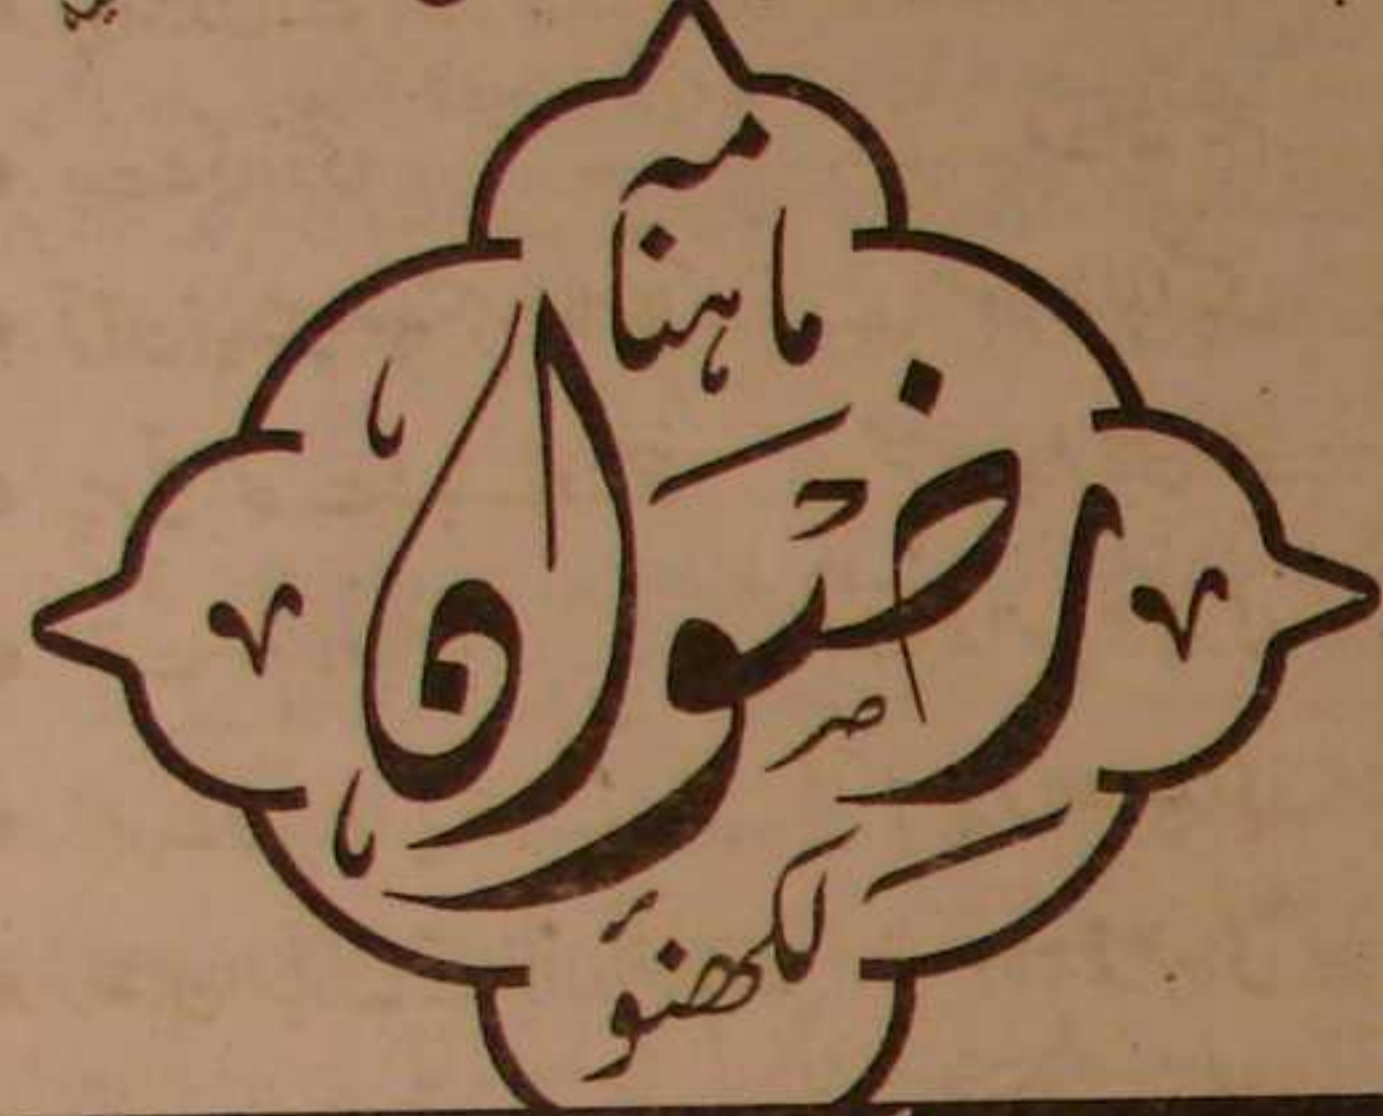 ماہنامہ
رِضْوَان
لکھنؤ